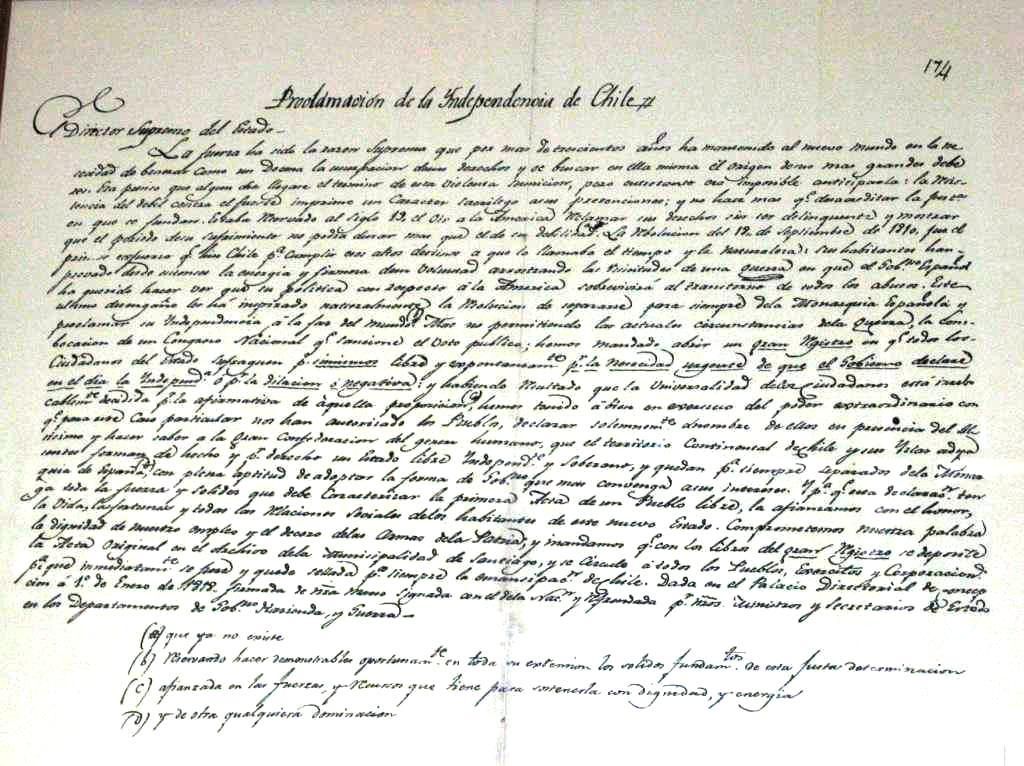 174
Proclamación de la Yndependencia de Chile
Director Supremo del Estado
La fuerza ha sido la razon Suprema que por mas de trescientos años ha mantenido al nuevo mundo en la ne
cecidad de benerar como un Dogma la usurpacion de sus derechos y de buscar en ella misma el origen de sus mas grandes debe
res. Era preciso que algun dia llegase el termino de esta violenta sumicion, pero entretanto era imposible anticiparla: la Resis
tencia del debil contra el fuerte imprime un Caracter sacrilego a sus pretenciones; y no hace mas q.e desacreditar la justicia
en que se fundan. Estaba Reservado al Siglo 19, el Oir a la America Reclamar sus derechos sin ser delinquente y mostrar
que el periodo de su sufrimiento no podia durar mas que el de su debilidad. La Revolucion del 18 de Septiembre de 1810, fue el
primer esfuerzo q.e hizo Chile p.a Cumplir esos altos destinos a que lo llamaba el tiempo y la naturaleza: Sus habitantes han
probado desde entonces la energia y firmeza de su Voluntad arrostrando las Vicisitudes de una guerra en que el Gob.no Español
ha querido hacer ver que su politica con respecto á la America sobrevivirá al trastorno de todos los abusos. Este
ultimo desengaño les há inspirado naturalmente la Resolucion de separarse para siempre de la Monarquia Española y
proclamar su Yndependencia á la faz del mundo. Mas no permitiendo las actuales circunstancias de la Guerra, la Con-
bocacion de un Congreso Nacional q.e sancione el Voto publico; hemos mandado abrir un gran Registro en q.e todos los
Ciudadanos del Estado sufraguen p.r si mismos libre y expontaneam.te p.r la necesidad urgente de que el Gobierno declare
en el dia la Yndepend.a ó p.r la dilacion ó negativa; y habiendo Resultado que la Universalidad de los Ciudadanos está irrebo
cablem.te decidida p.r la afirmativa de aquella proposicion, hemos tenido á bien en exercicio del poder extraordinario con
q.e para este Caso particular nos han autorizado los Pueblos, declarar solemnem.te á nombre de ellos en presencia del Al
tisimo y hacer saber a la gran Confederacion del genero humano, que el territorio Continental de Chile y sus Yslas adya
centes forman de hecho y p.r derecho un Estado libre Yndepend.te y Soberano, y quedan p.a siempre separados de la Monar
quia de España, con plena aptitud de adoptar la forma de Gob.no que mas convenga a sus intereses. Y p.a q.e esta declarac.n ten
ga toda la fuerza y solides que debe Caracterizar la primera Acta de un Pueblo libre, la afianzamos con el honor,
la Vida, las fortunas y todas las Relaciones Sociales de los habitantes de este nuevo Estado. Comprometemos nuestra palabra
la dignidad de nuestro empleo y el decoro de las Armas de la Patria; y mandamos q.e con los libros del gran Registro se deposite
la Acta Original en el Archivo de la Municipalidad de Santiago, y se Circule á todos los Pueblos, Exercitos y Corporacion.s
p.a que inmediatam.te se jure y quede sellada p.a siempre la emansipac.n de Chile. Dada en el Palacio Directorial de Concep
cion á 1.o de Enero de 1818, firmada de nra. mano Signada con el de la Nac.n y Refrendada p.r nros. Ministros y Secretarios de Estado
en los Departamentos de Gob.no Hacienda, y Guerra
(a) que ya no existe
(b) Reservando hacer demonstrables oportunam.te en toda su extension los solidos fundam.tos de esta justa determinacion
(c) afianzada en las fuerzas, y Recursos que tiene para sostenerla con dignidad, y energia
(D) y de otra qualquiera dominacion